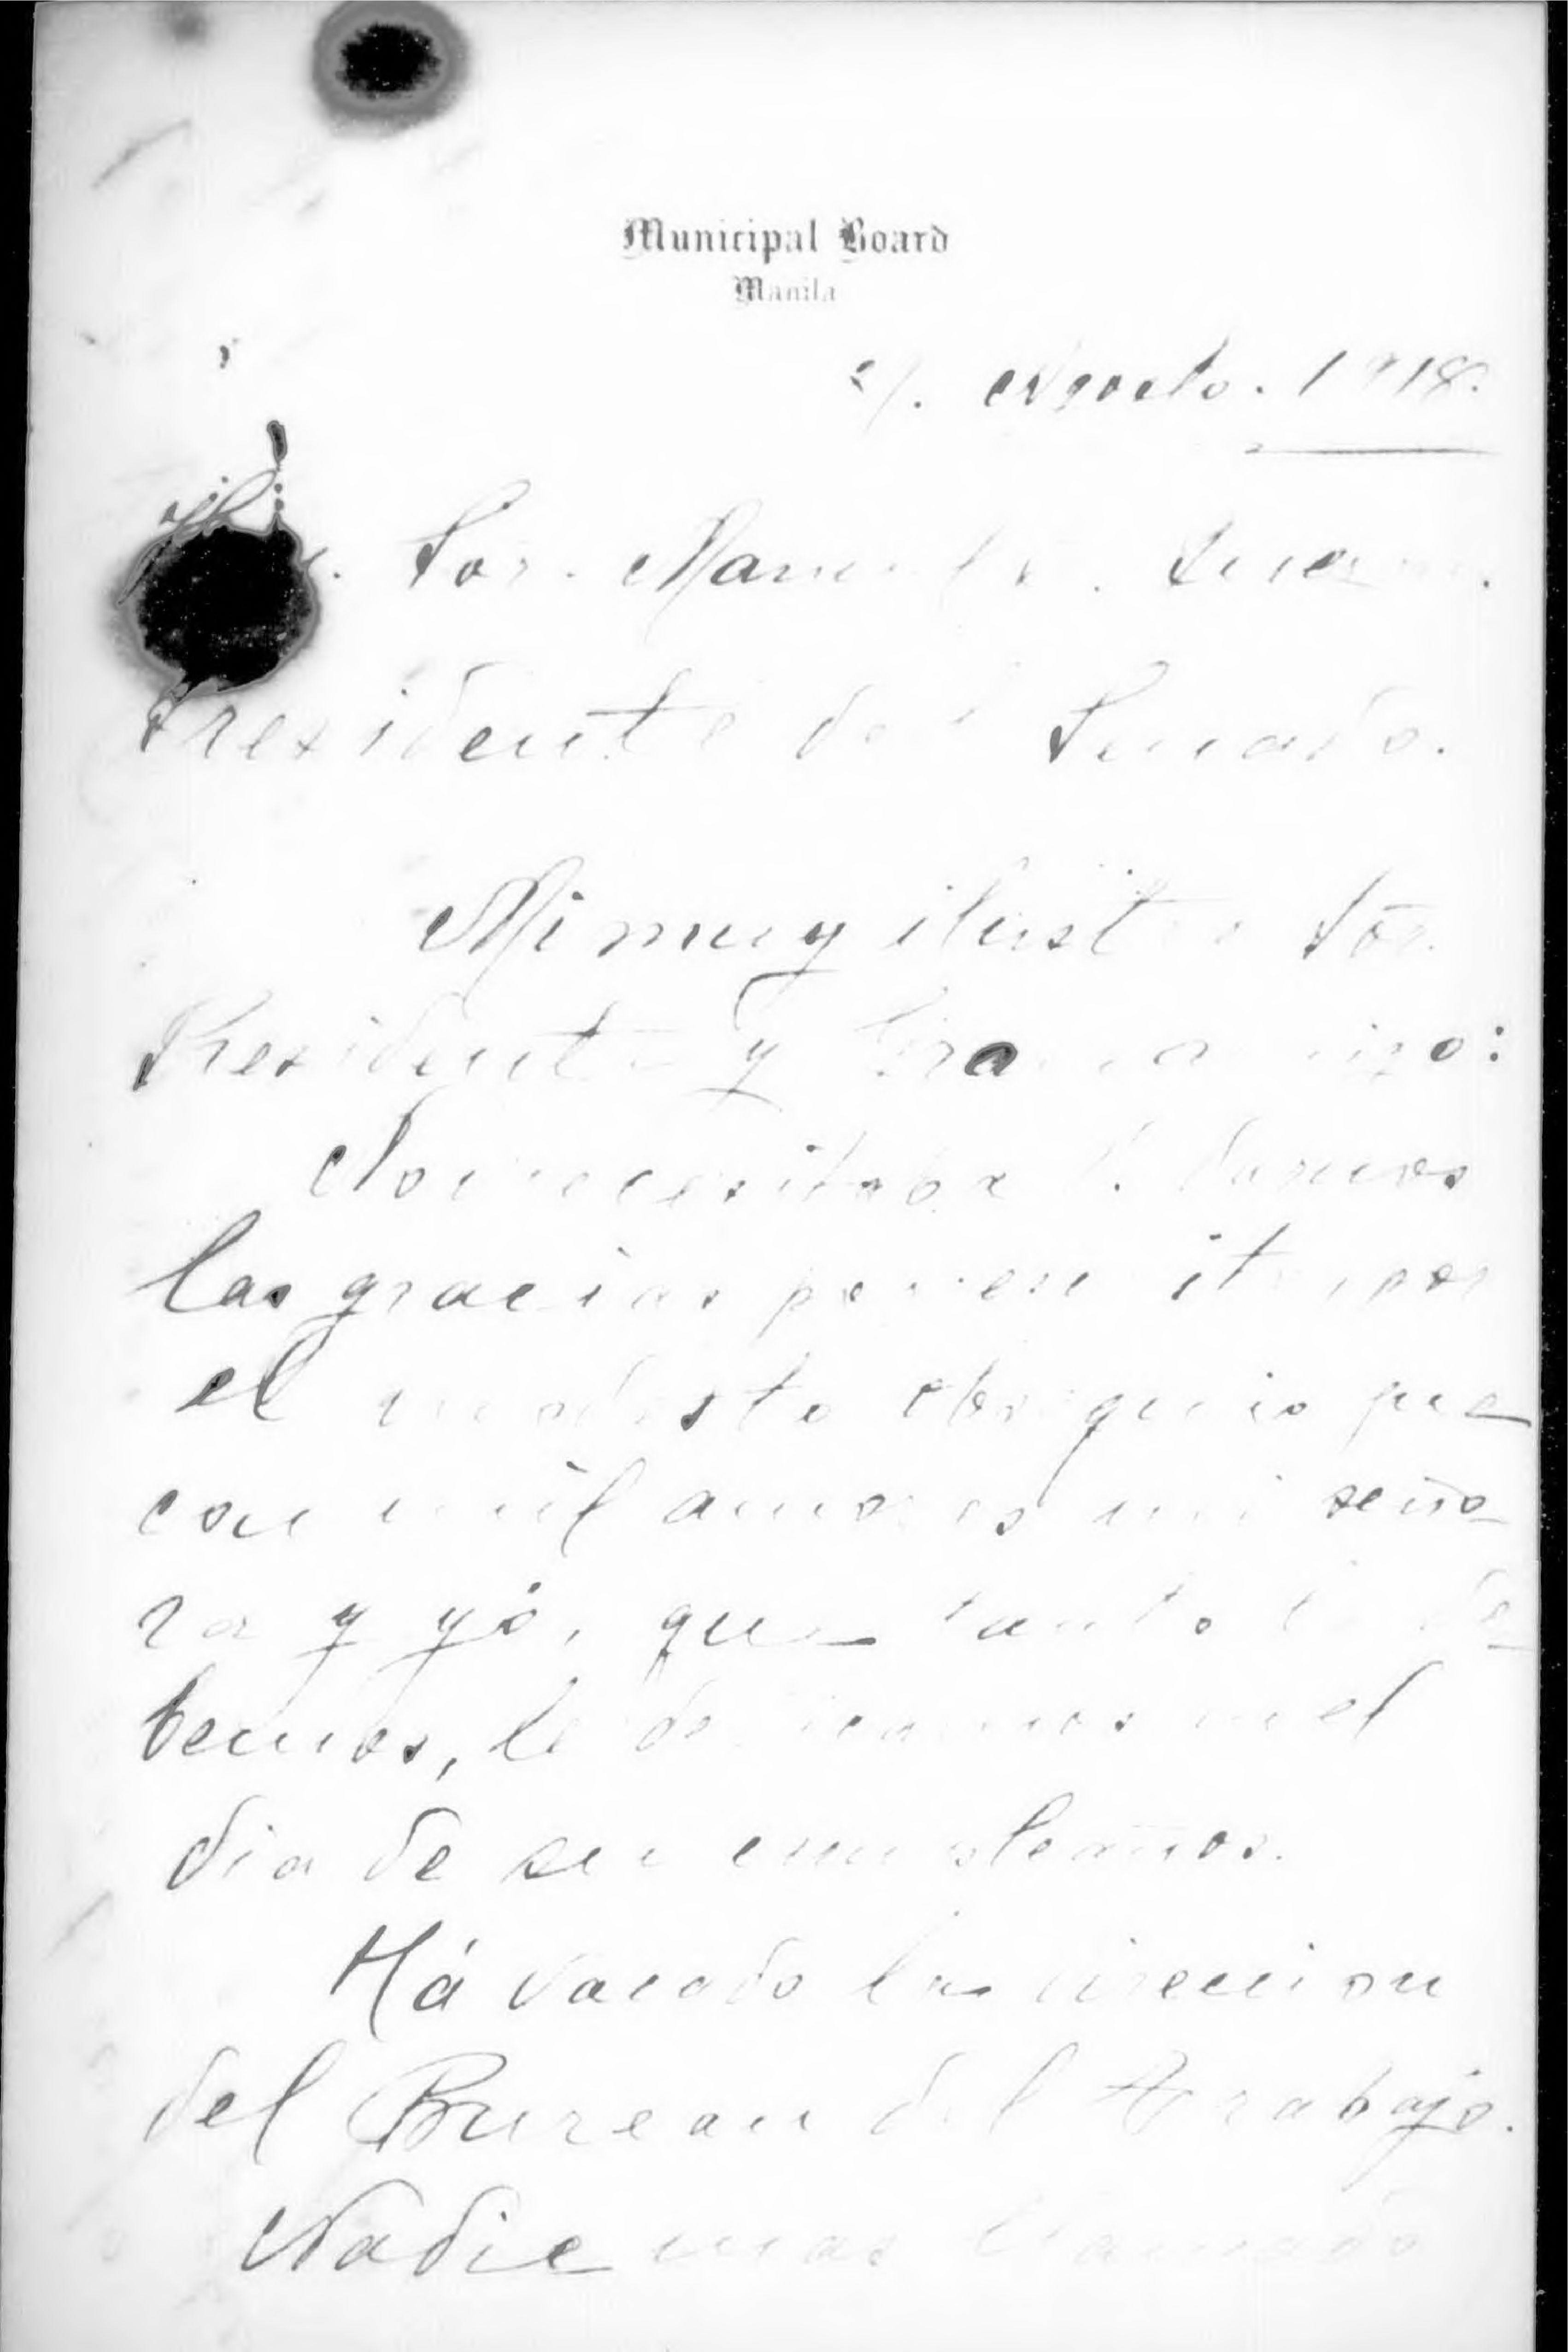 Municipal Board
Manila
Agosto. 1918.
Sor. Manuel Quezon.
Presidente del Senado.
Mi muy ilustre Sor.
Presidente y Gran amigo:
No necesitaba V. darnos
las gracias por escrito, por
el modesto obsequio que
con mil amores mi seño-
ra y yó, que tanto le de-
bemos, le dedicamos en el
dia de su cumpleaños.
Há vacado la direccion
del Bureau del Trabajo.
Nadie mas llamado